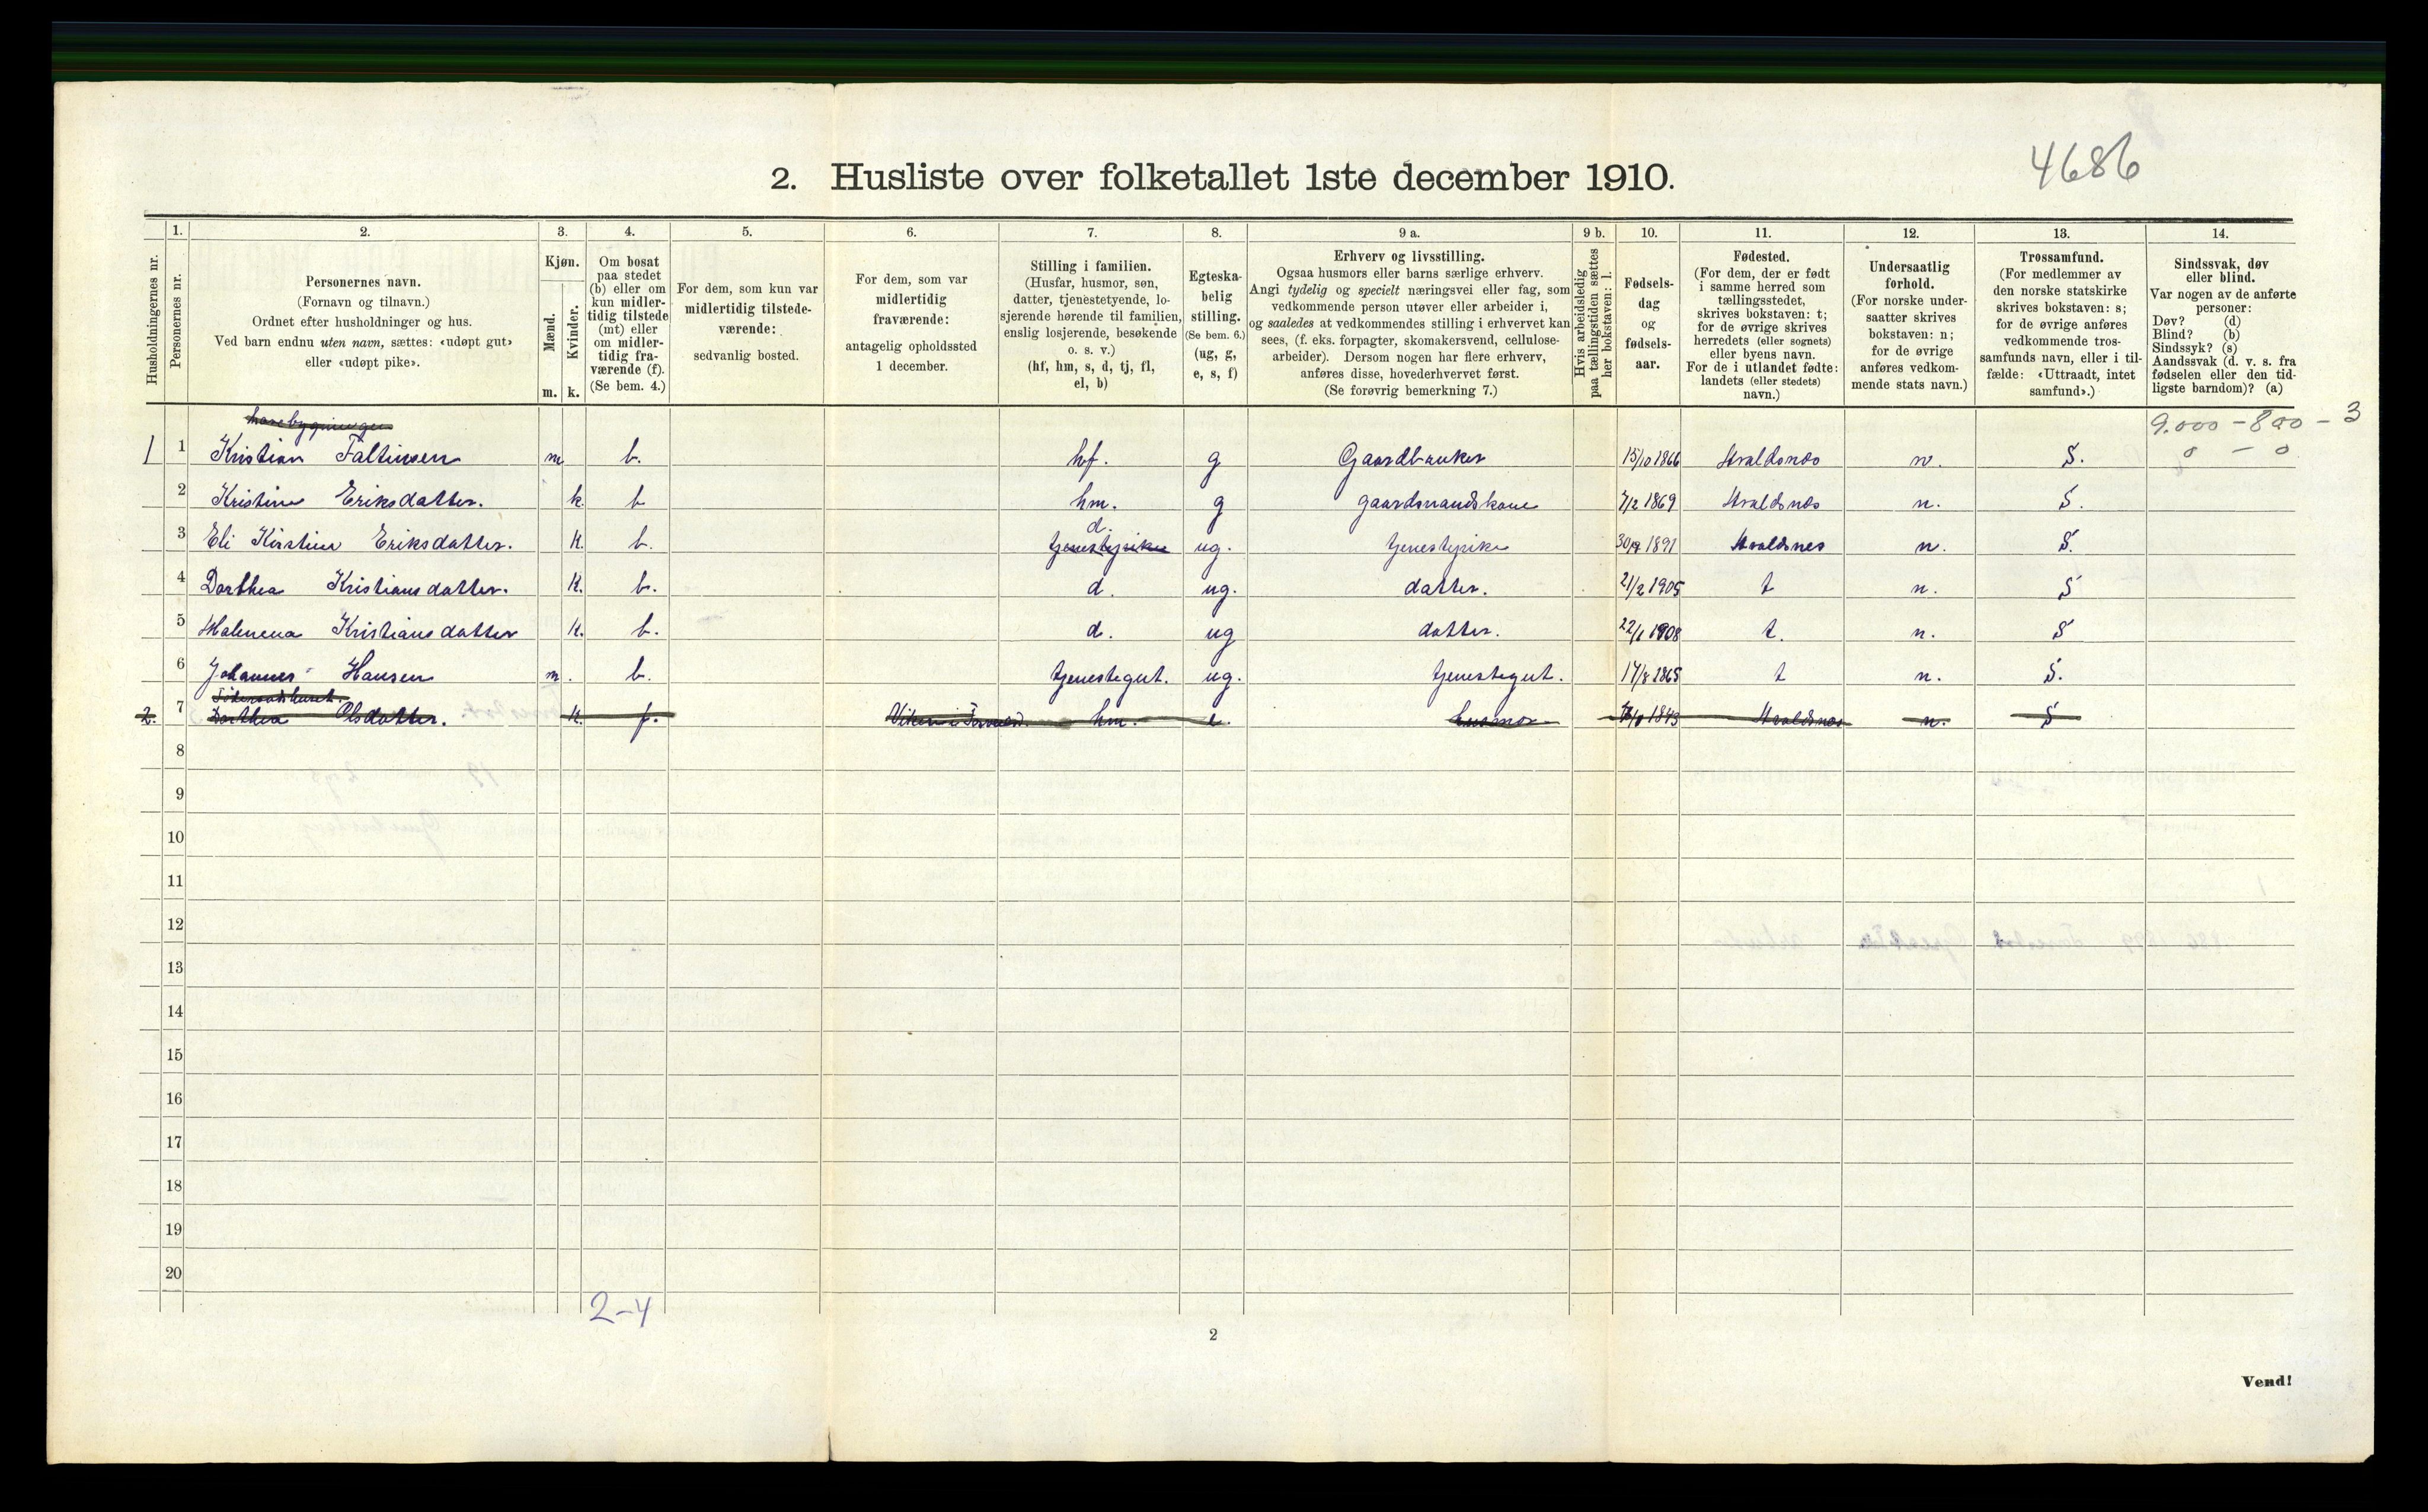 4686
2. Husliste over folketallet 1ste december 1910.
Husholdningernes nr.
1. Personernes nr.
2. Personernes navn. (Fornavn og tilnavn.) Ordnet efter husholdninger og hus. Ved barn endnu uten navn, sættes: «udøpt gut» eller «udøpt pike».
3. Kjøn. Mænd. m. Kvinder. k.
4. Om bosat paa stedet (b) eller om kun midlertidig tilstede (mt) eller om midlertidig fraværende (f). (Se bem. 4.)
5. For dem, som kun var midlertidig tilstedeværende: sedvanlig bosted.
6. For dem, som var midlertidig fraværende: antagelig opholdssted 1 december.
7. Stilling i familien. (Husfar, husmor, søn, datter, tjenestetyende, losjerende hørende til familien, enslig losjerende, besøkende o. s. v.) (hf, hm, s, d, tj, fl, el, b)
8. Egteskabelig stilling. (Se bem. 6.) (ug, g, e, s, f)
9 a. Erhverv og livsstilling. Ogsaa husmors eller barns særlige erhverv. Angi tydelig og specielt næringsvei eller fag, som vedkommende person utøver eller arbeider i, og saaledes at vedkommendes stilling i erhvervet kan sees, (f. eks. forpagter, skomakersvend, cellulosearbeider). Dersom nogen har flere erhverv, anføres disse, hovederhvervet først. (Se forøvrig bemerkning 7.)
9 b. Hvis arbeidsledig paa tællingstiden sættes her bokstaven: l.
10. Fødselsdag og fødselsaar.
11. Fødested. (For dem, der er født i samme herred som tællingsstedet, skrives bokstaven: t; for de øvrige skrives herredets (eller sognets) eller byens navn. For de i utlandet fødte: landets (eller stedets) navn.)
12. Undersaatlig forhold. (For norske undersaatter skrives bokstaven: n; for de øvrige anføres vedkommende stats navn.)
13. Trossamfund. (For medlemmer av den norske statskirke skrives bokstaven: s; for de øvrige anføres vedkommende trossamfunds navn, eller i tilfælde: «Uttraadt, intet samfund».)
14. Sindssvak, døv eller blind. Var nogen av de anførte personer: Døv? (d) Blind? (b) Sindssyk? (s) Aandssvak (d. v. s. fra fødselen eller den tidligste barndom)? (a)
9.000 - 800 - 3
1 1 Kristian Faltinsen m b. hf. g Gaardbruker 15/10 1866 Hvaldsnæs n. S. 0 - 0
2 Kristine Eriksdatter. k. b hm. g gaardmandskone 7/2 1869 Hvaldsnæs n. S.
d.
3 Eli Kirstine Eriksdatter. K. b. tjenestepike ug. tjenestepike 1891 Hvaldsnes n. S.
4 Dorthea Kristiansdatter. K. b. d. ug. datter. 21/2 1905 t n. S
5 Malenena Kristiansdatter K. b. d. ug datter. 22/1 1908 t. n. S
6 Johannes Hansen m. b. tjenestegut. ug. tjenestegut. 17/8 1865 t n. S.
2. 7 Dorthea Olsdatter. K. f. hm. e. husmor 1843 Hvaldsnæs n. S
8
9
10
11
12
13
14
15
16
17
18
19
20
2-4
2
Vend!